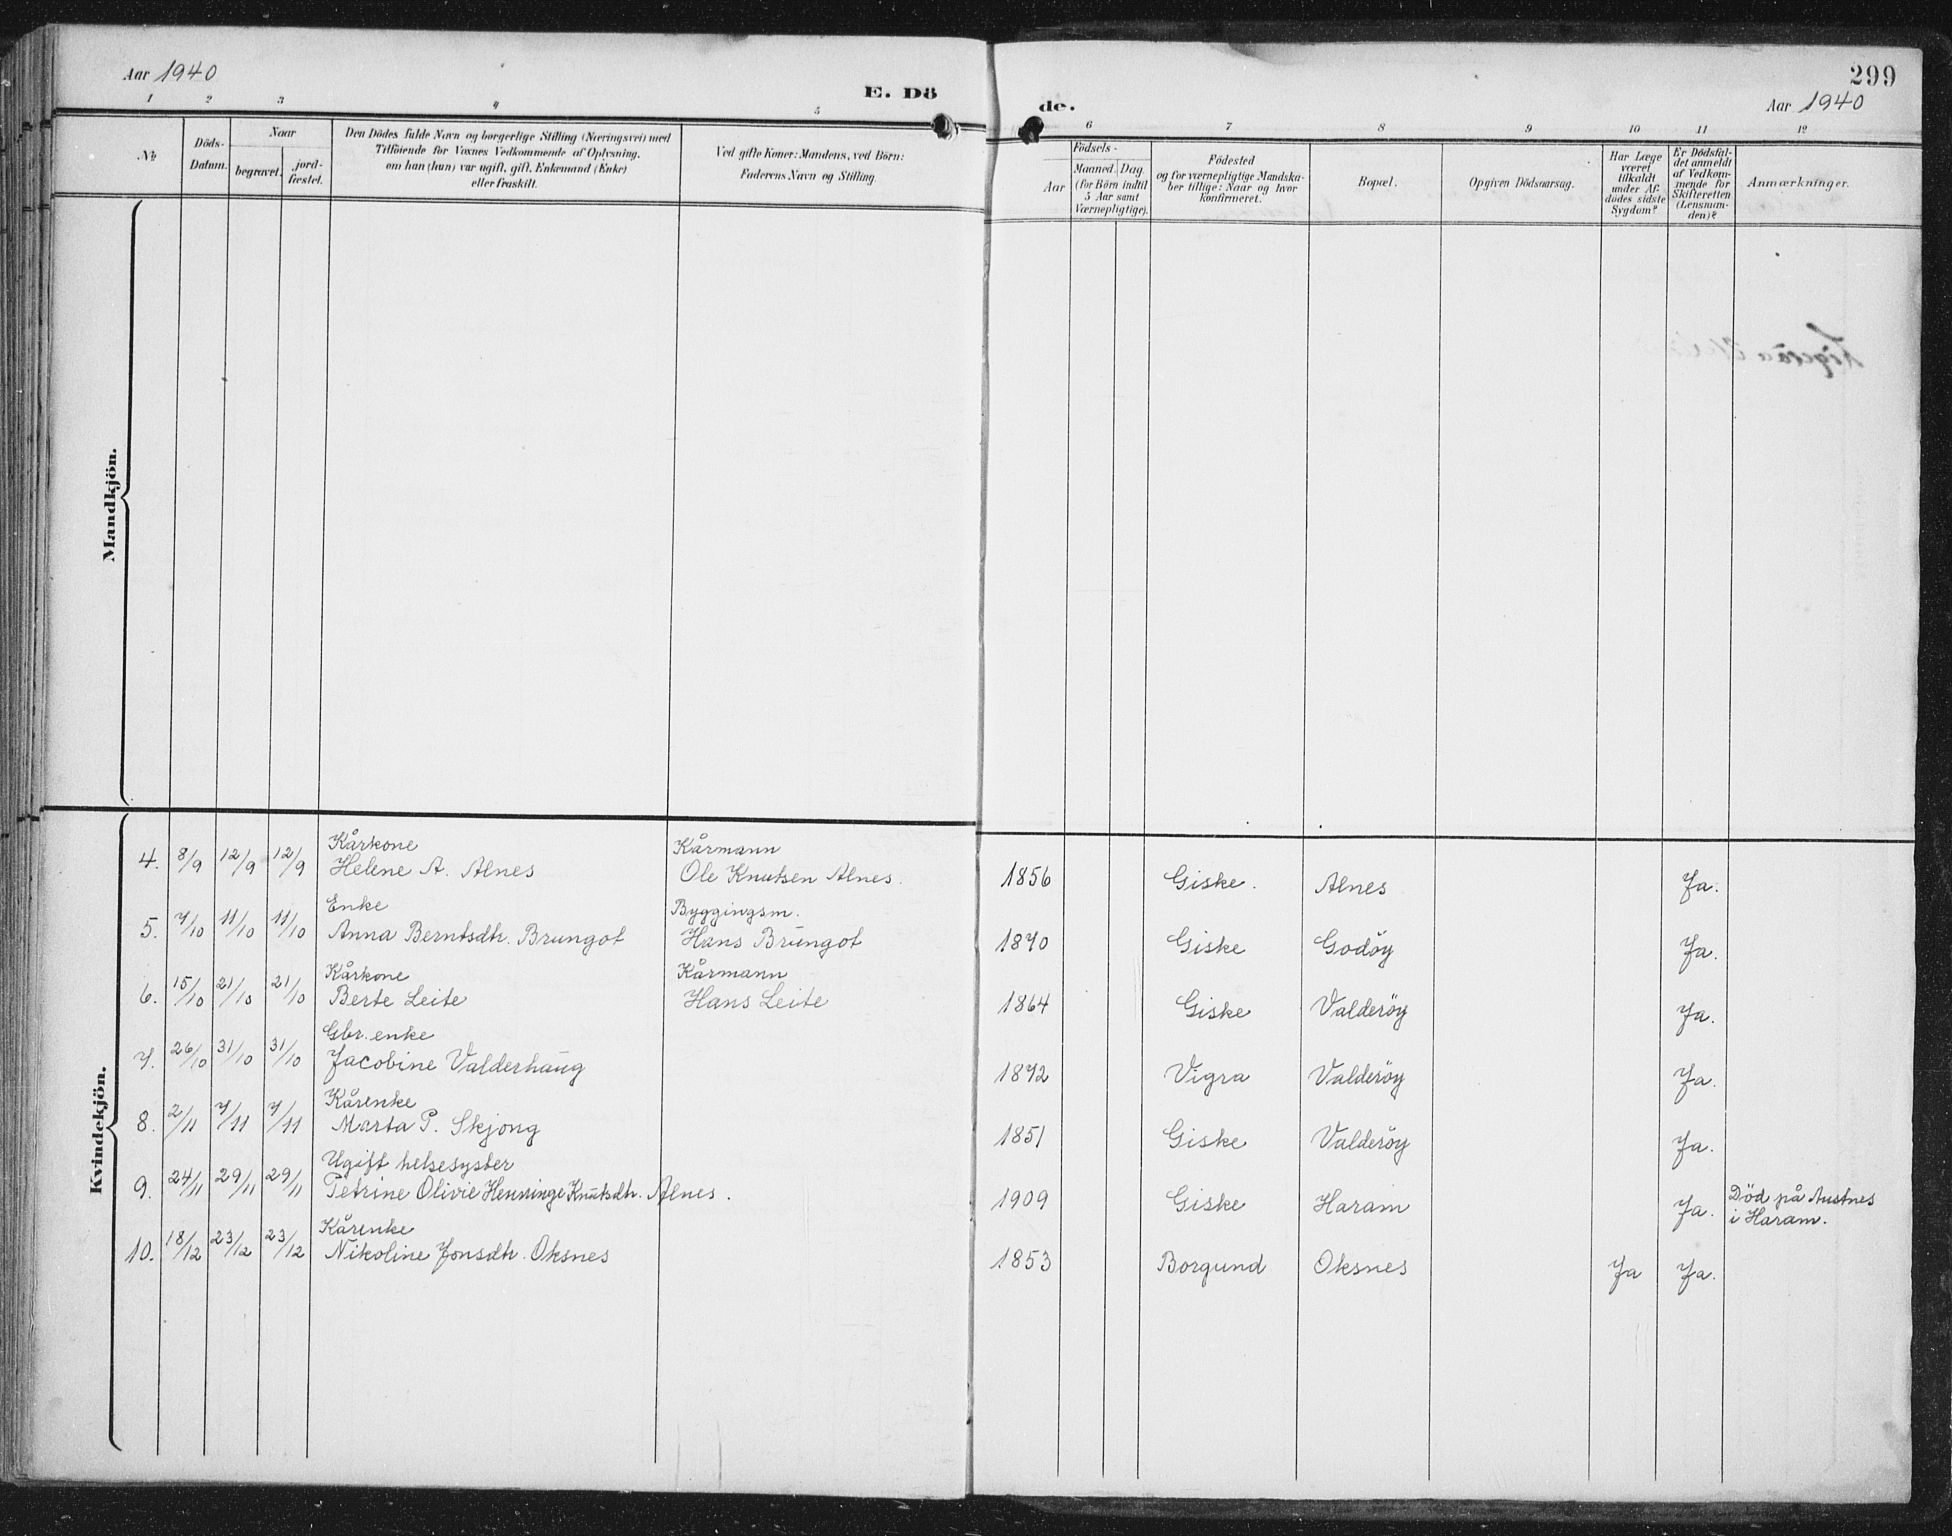 Aar 1940
E. Dö
de.
299
Aar 1940
1 2 3 4 5
6 7 8 9 10 11 12
No
Döds-
Datum.
Naar
begravet.
jord-
fæstet.
Den Dödes fulde Navn og borgerlige Stilling (Næringsvei) med
Tilföiende for Voxnes Vedkommende af Oplysning.
om han (hun) var ugift, gift, Enkemand (Enke)
eller fraskilt.
Ved gifte Koner: Mandens, ved Börn:
Faderens Navn og Stilling.
Födsels-
Aar
Maaned. Dag.
(for Börn indtil
5 Aar samt
Værnepligtige).
Födested
og for værnepligtige Mandska-
ber tillige: Naar og hvor
konfirmeret.
Bopæl.
Opgiven Dödsaarsag.
Har Læge
været
tilkaldt
under Af-
dödes sidste
Sygdom?
Er Dödsfal-
det anmeldt
af Vedkom-
mende for
Skifteretten
(Lensman-
den)?
Anmærkninger.
Mandkjön.
Kvindekjön.
Kårkone Kårmann
4. 8/9 12/9 12/9 Helene A. Alnes Ole Knutsen Alnes. 1856 Giske. Alnes Ja.
Enke Byggingsm.
5. 7/10 11/10 11/10 Anna Berntsdh. Brungot Hans Brungot 1870 Giske Godöy Ja.
Kårkone Kårmann
6. 15/10 21/10 21/10 Berte Leite Hans Leite 1864 Giske Valderöy Ja.
Gbr. enke
7. 26/10 31/10 31/10 Jacobine Valderhaug 1872 Vigra Valderöy Ja.
Kårenke
8. 2/11 7/11 7/11 Marta P. Skjong 1851 Giske Valderöy Ja.
Ugift helsesyster
9. 24/11 29/11 29/11 Petrine Olivie Henninge Knutsdh. Alnes. 1909 Giske Haram Ja. Död på Austnes
i Haram.
Kårenke
10. 18/12 23/12 23/12 Nikoline Jonsdh. Oksnes 1853 Borgund Oksnes Ja Ja.